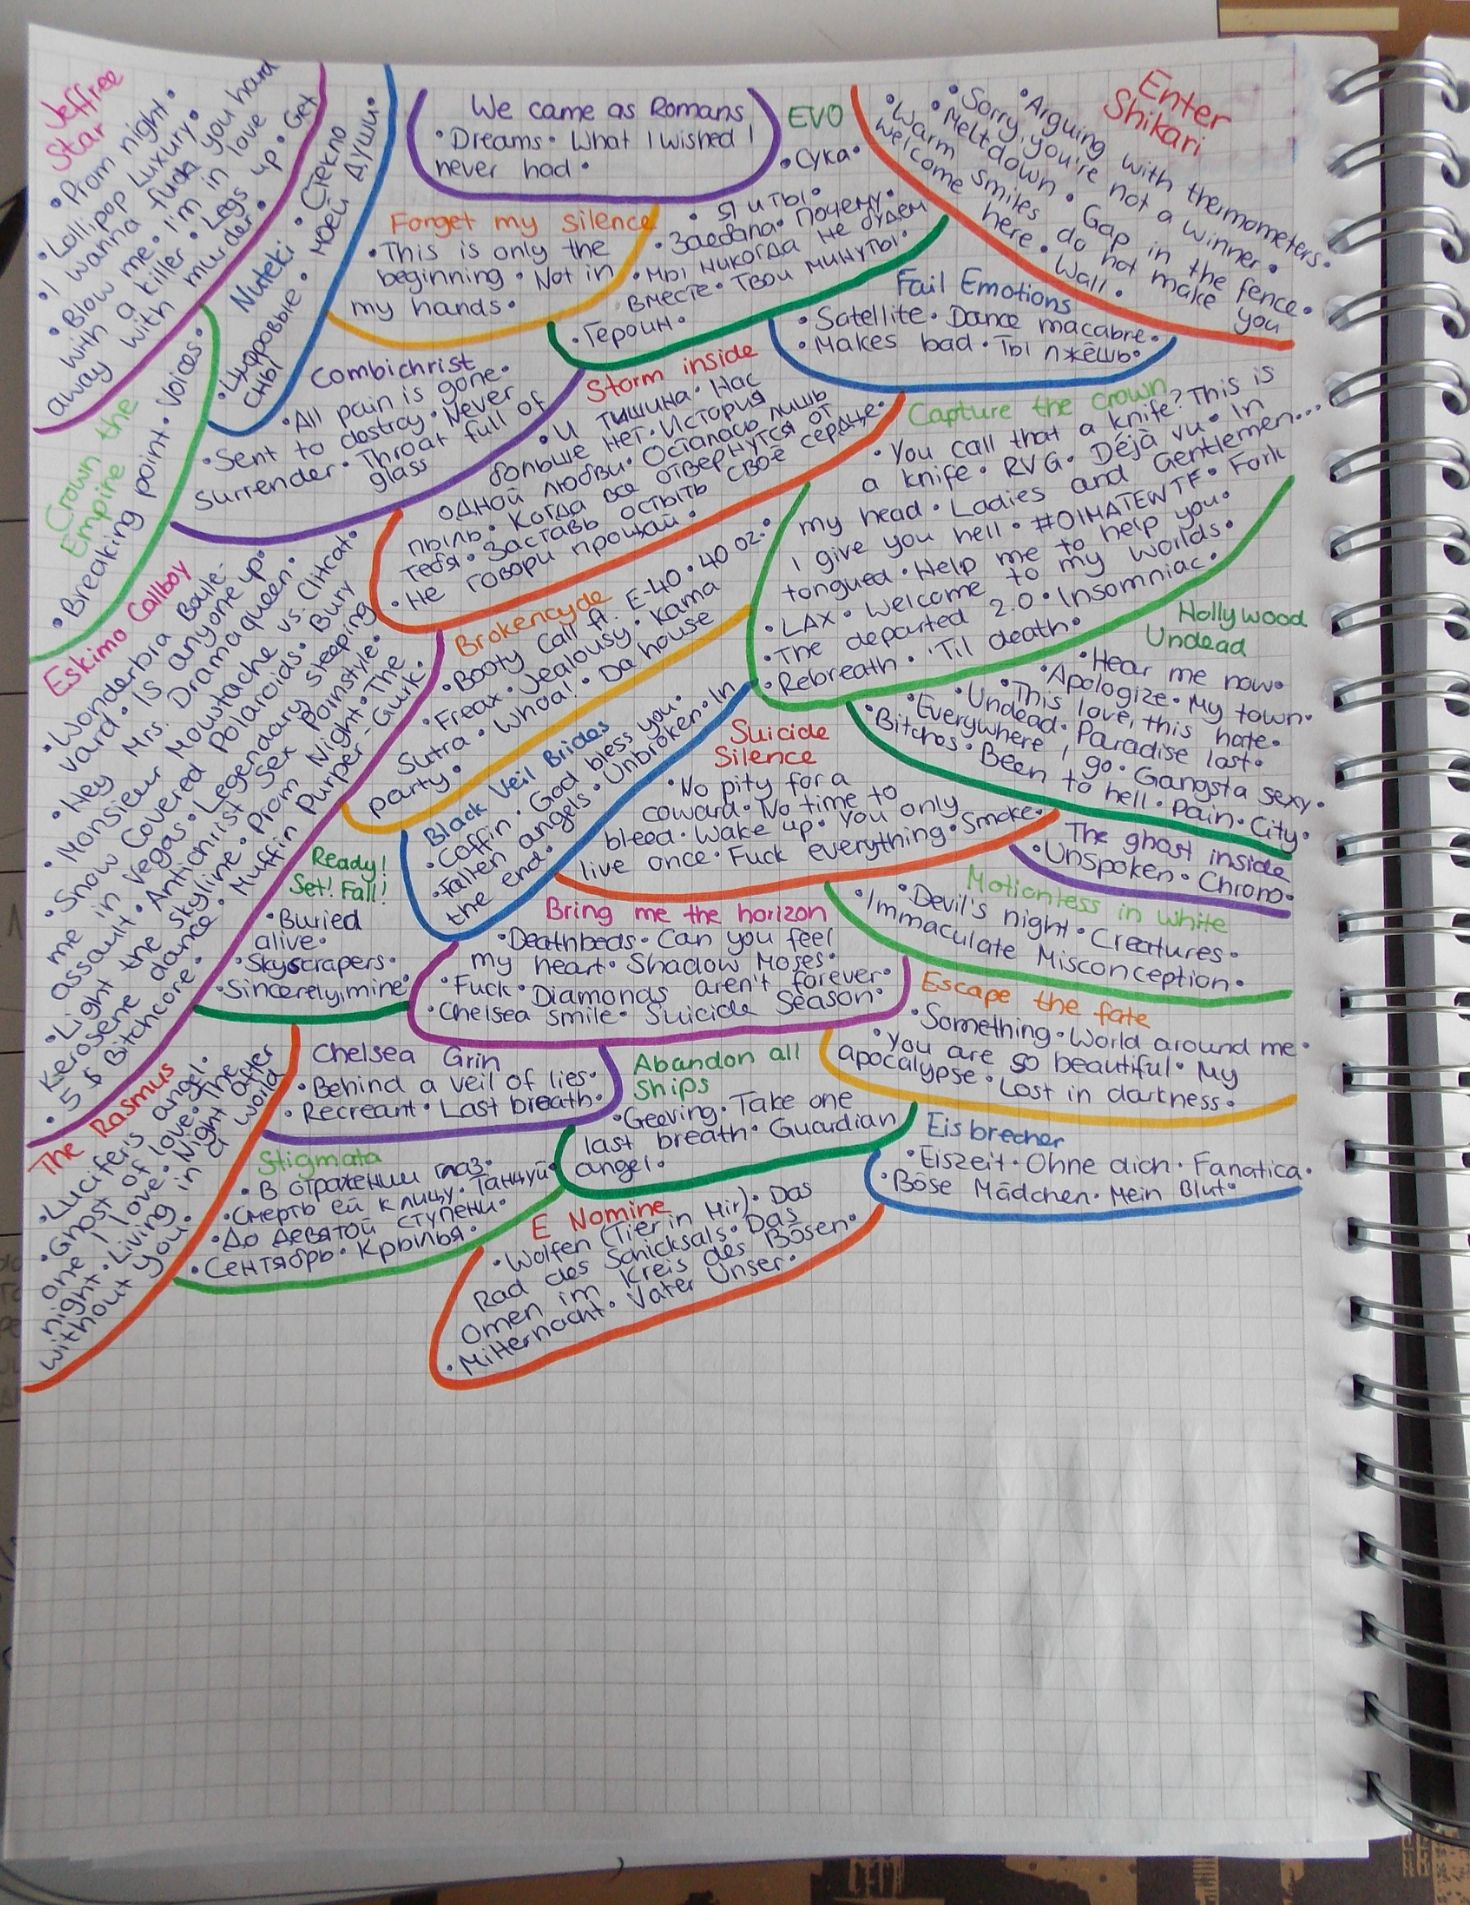 Jeffree
Star
• Prom night •
• Lollipop Luxury •
• I wanna fuck you hard
• Blow me • I'm in love
with a killer • Legs up • Get
away with murder •
Nuteki • Стекло
• Цифровые • моей души •
сны
We came as Romans
• Dreams • What I wished I
never had •
EVO
• Сука •
• Я и ты •
• Заебала • Почему •
• Мы никогда не будем
вместе • Твои минуты •
• Героин •
Enter
Shikari
• Arguing with thermometers •
• Sorry, you're not a winner •
• Meltdown • Gap in the fence •
• Warm smiles do not make you
welcome here • Wall •
Forget my silence
• This is only the
beginning • Not in
my hands •
Fail Emotions
• Satellite • Dance macabre •
• Makes bad • Ты лжёшь •
Crown the
Empire
• Breaking point • Voices •
Combichrist
• All pain is gone •
• Sent to destroy • Never
surrender • Throat full of
glass
Storm inside
• И тишина • Нас
больше нет • История
одной любви • Осталась лишь
пыль • Когда все отвернутся от
тебя • Заставь остыть своё сердце •
• Не говори прощай •
Capture the crown
• You call that a knife? This is
a knife • RVG • Déjà vu • In
my head • Ladies and Gentlemen...
I give you hell • #OIHATEWTF • Fork
tongued • Help me to help you •
• LAX • Welcome to my worlds •
• The departed 2.0 • Insomniac •
• Rebreath • 'Til death •
Eskimo Callboy
• Wonderbra Boule-
vard • Is anyone up •
• Hey Mrs. Dramaqueen •
• Monsieur Moustache vs. Clitcat •
• Snow Covered Polaroids • Bury
me in Vegas • Legendary sleeping
assault • Antichrist • Sex Pointstyle •
• Light the skyline • Prom Night • The
Kerosene dance • Muffin Purper-Gurk •
• 5$ Bitchcore •
Brokencyde
• Booty Call ft. E-40 • 40 oz •
• Freax • Jealousy • Kama
Sutra • Whoa! • Da house
party •
Hollywood
Undead
• Hear me now •
• Apologize • My town •
• This love, this hate •
• Undead • Paradise lost •
• Everywhere I go • Gangsta sexy •
• Bitches • Been to hell • Pain • City •
Black Veil Brides
• Coffin • God bless you •
• Fallen angels • Unbroken • In
the end •
Suicide
Silence
• No pity for a
coward • No time to
bleed • Wake up • You only
live once • Fuck everything • Smoke •
The ghost inside
• Unspoken • Chrono •
Ready!
Set! Fall!
• Buried
alive •
• Skyscrapers •
• Sincerely, mine •
Bring me the horizon
• Deathbeds • Can you feel
my heart • Shadow Moses •
• Fuck • Diamonds aren't forever •
• Chelsea smile • Suicide Season •
Motionless in white
• Devil's night • Creatures •
• Immaculate Misconception •
Escape the fate
• Something • World around me •
• You are so beautiful • My
apocalypse • Lost in darkness •
The Rasmus
• Lucifer's angel •
• Ghost of love • The
one I love • Night after
night • Living in a world
without you •
Chelsea Grin
• Behind a veil of lies •
• Recreant • Last breath •
Abandon all
Ships
• Geeving • Take one
last breath • Guardian
angel •
Stigmata
• В отражении глаз •
• Смерть ей к лицу • Танцуй •
• До девятой ступени •
• Сентябрь • Крылья •
Eisbrecher
• Eiszeit • Ohne dich • Fanatica •
• Böse Mädchen • Mein Blut •
E Nomine
• Wolfen (Tier in Mir) • Das
Rad des Schicksals • Das
Omen im Kreis des Bösen •
• Mitternacht • Vater Unser •